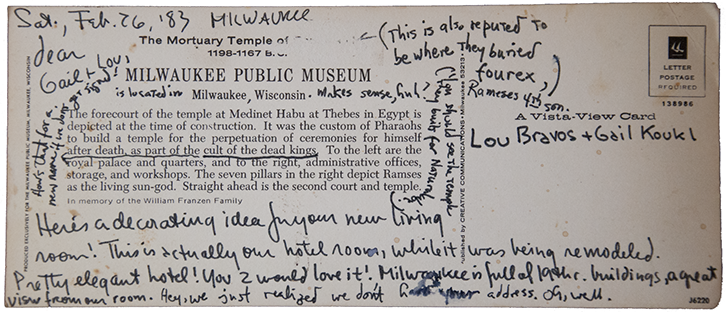 Sat., Feb. 26, '83 MILWAUKEE
The Mortuary Temple of
1198-1167 B.C.
Dear
Gail + Lou,
MILWAUKEE PUBLIC MUSEUM
is located in Milwaukee, Wisconsin. Makes sense, huh?
The forecourt of the temple at Medinet Habu at Thebes in Egypt is
depicted at the time of construction. It was the custom of Pharaohs
to build a temple for the perpetuation of ceremonies for himself
after death, as part of the cult of the dead kings. To the left are the
royal palace and quarters, and to the right, administrative offices,
storage, and workshops. The seven pillars in the right depict Ramses
as the living sun-god. Straight ahead is the second court and temple.
In memory of the William Franzen Family
How's that for a
new name if we don't
get signed?
(This is also reputed to
be where they buried
fourex,
Rameses 4th son.
(You should see the temple
they built for Naturalube.)
Here's a decorating idea for your new living
room! This is actually our hotel room, while it was being remodeled.
Pretty elegant hotel! You 2 would love it! Milwaukee is full of 19th c. buildings, a great
view from our room. Hey, we just realized we don't have your address. Oh, well.
PRODUCED EXCLUSIVELY FOR THE MILWAUKEE PUBLIC MUSEUM, MILWAUKEE, WISCONSIN
Published by CREATIVE COMMUNICATIONS • Milwaukee, Wisconsin 53213
LETTER
POSTAGE
REQUIRED
138986
A Vista-View Card
Lou Bravos + Gail Koukl
J6220